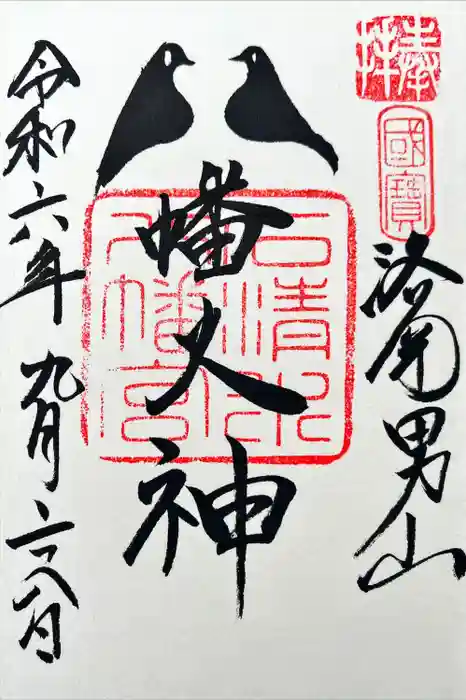 奉拝
國寶
洛南男山
八幡大神
石清水
八幡宮
令和六年九月二十八日